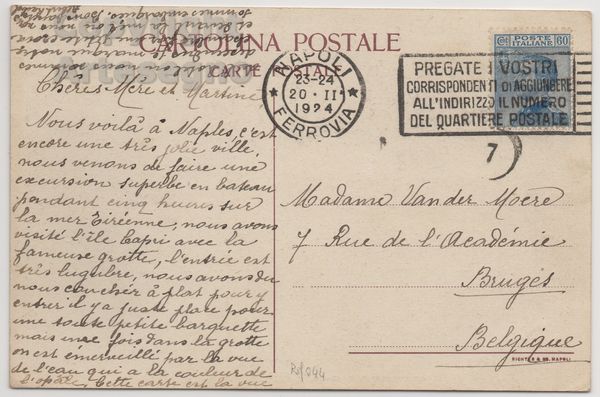 CARTOLINA POSTALE
CARTE POSTALE
POSTE ITALIANE
Cent 60
NAPOLI
23-24
20·II
1924
FERROVIA
PREGATE I VOSTRI
CORRISPONDENTI DI AGGIUNGERE
ALL'INDIRIZZO IL NUMERO
DEL QUARTIERE POSTALE
7
Chères Mère et Martine
Nous voilà à Naples, c'est
encore une très jolie ville,
nous venons de faire une
excursion superbe en bateau
pendant cinq heures sur
la mer Tiréenne, nous avons
visité l'île Capri avec la
fameuse grotte, l'entrée est
très lugubre, nous avons du
nous coucher à plat pour y
entrer il y a juste place pour
une toute petite barquette
mais une fois dans la grotte
on est émerveillé par la vue
de l'eau qui a la couleur de
l'opale, Cette carte est la vue
Madame Van der Moere
7 Rue de l'Académie
Bruges
Belgique
RICHTER & Co. NAPOLI